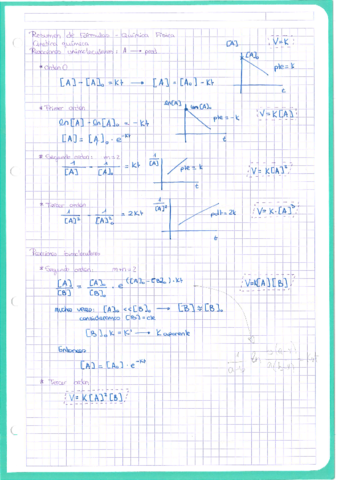 Resumen de Fórmulas - Química Física
Cinética química
Reacciones unimoleculares: A → prod
• Orden 0
V = K
[A]
[A]₀
pte = k
t
[A] - [A]₀ = Kt → [A] = [A₀] - Kt
• Primer orden
ln[A]
ln[A]₀
pte = -k
t
V = K[A]
ln[A] - ln[A]₀ = -Kt
[A] = [A]₀ · e^-Kt
• Segundo orden: n = 2
1/[A] - 1/[A]₀ = Kt
1/[A]
pte = k
t
V = K[A]²
• Tercer orden
1/[A]² - 1/[A]₀² = 2Kt
1/[A]²
pte = 2k
t
V = K·[A]³
Reacciones bimoleculares
• Segundo orden: m+n = 2
[A]/[B] = [A]₀/[B]₀ · e^([A]₀ - [B]₀)·Kt
V = K[A][B]
muchas veces: [A]₀ << [B]₀ → [B] ≅ [B]₀
consideramos [B] = cte
[B]₀ K = K' → K aparente
Entonces
[A] = [A₀] · e^-Kt
• Tercer orden
V = K[A]²[B]